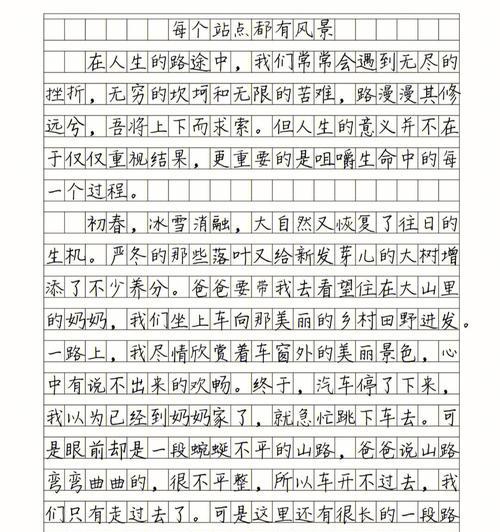 每个站点都有风景
在人生的路途中，我们常常会遇到无尽的
挫折，无穷的坎坷和无限的苦难，路漫漫其修
远兮，吾将上下而求索。但人生的意义并不在
于仅仅重视结果，更重要的是咀嚼生命中的每
一个过程。
初春，冰雪消融，大自然又恢复了往日的
生机。严冬的那些落叶又给新发芽儿的大树增
添了不少养分。爸爸要带我去看望住在大山里
的奶奶，我们坐上车向那美丽的乡村田野进发。
一路上，我尽情欣赏着车窗外的美丽景色，心
中有说不出来的欢畅。终于，汽车停了下来，
我以为已经到奶奶家了，就急忙跳下车去。可
是眼前却是一段蜿蜒不平的山路，爸爸说山路
弯弯曲曲的，很不平整，所以车开不过去，我
们只有走过去了。可是这里还有很长的一段路